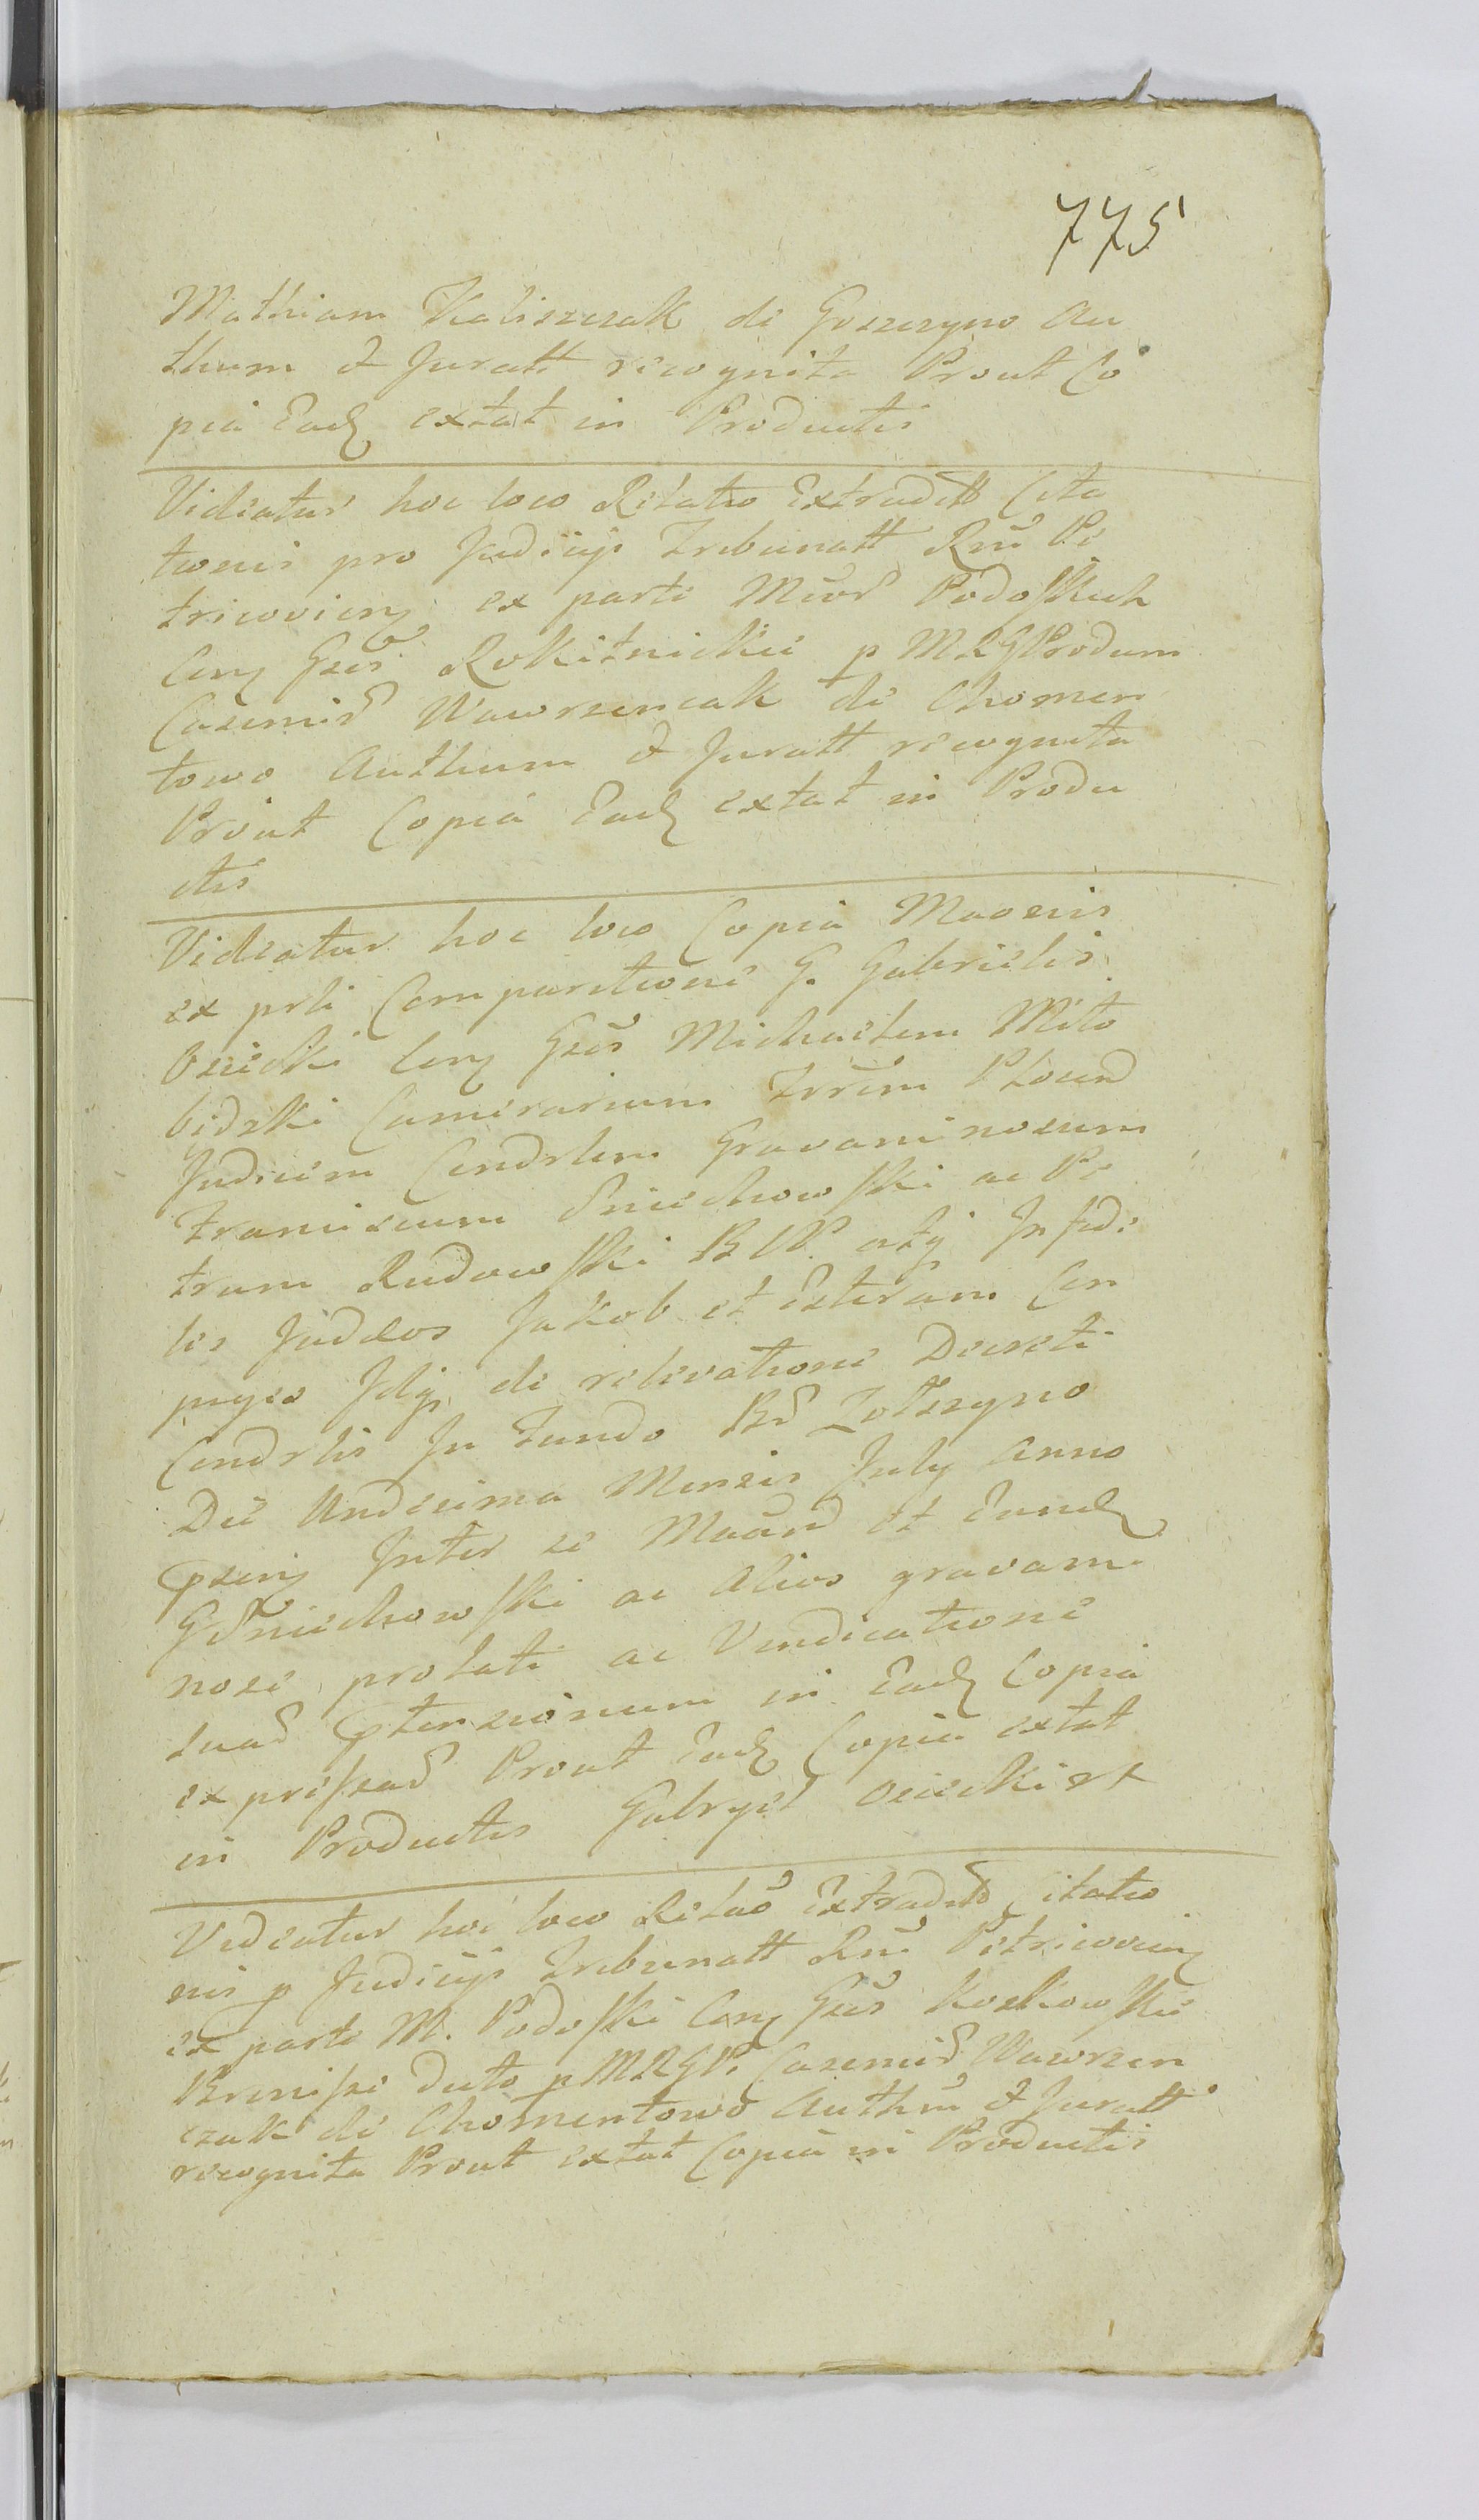 775
Mathiam Kaliszczak de Goszczyno Au
thum & Juratt recognita Prout Co
pia Ead extat in Productis
Videatur hoc loco Relatio Extraditt Cita
tionis pro Judiciis Tribunatt Rni Pe
tricovien ex parte Mcor Podoskich
Con Gsos Rokitnickie p MRGProdum
Casimir Wawrzencak de Chomen
towo Authum & Juratt recognita
Prout Copia Ead extat in Produ
ctis
Videatur hoc loco Copia Maoenis
ex prli Comparitione G. Gabrielis
Osiecki Con Gsos Michaelem Mito
bidzki Camerarium Trrem Plocen
Judicem Condrlem Gravaminosum
Franciscum Sniechowski ac Pe
trum Rudowski BVP atq Infide
les Judeos Jakob et Esteram Con
juges Idq de relevatione Decreti
Condrlis In Fundo Br Zolszyno
Die Undecima Mensis July Anno
psen Inter se Maan et Eund
GSniechowski ac Alios gravami
nose prolati ac Vendicatione
suar Ptensionum in Ead Copia
expressar Prout Ead Copia extat
in Productis Gabryel Osiecki
Videatur hoc loco Relao Extradit Citatio
nis p Judiciis Tribunatt Rni Petricovien
ex parte M. Podoski Con Gsos Kozlowskie
Brenisse dicto p MRGP. Casimir Wawrzen
czak de Chomentowo Authm & Juratt
recognita Prout extat Copia in Productis